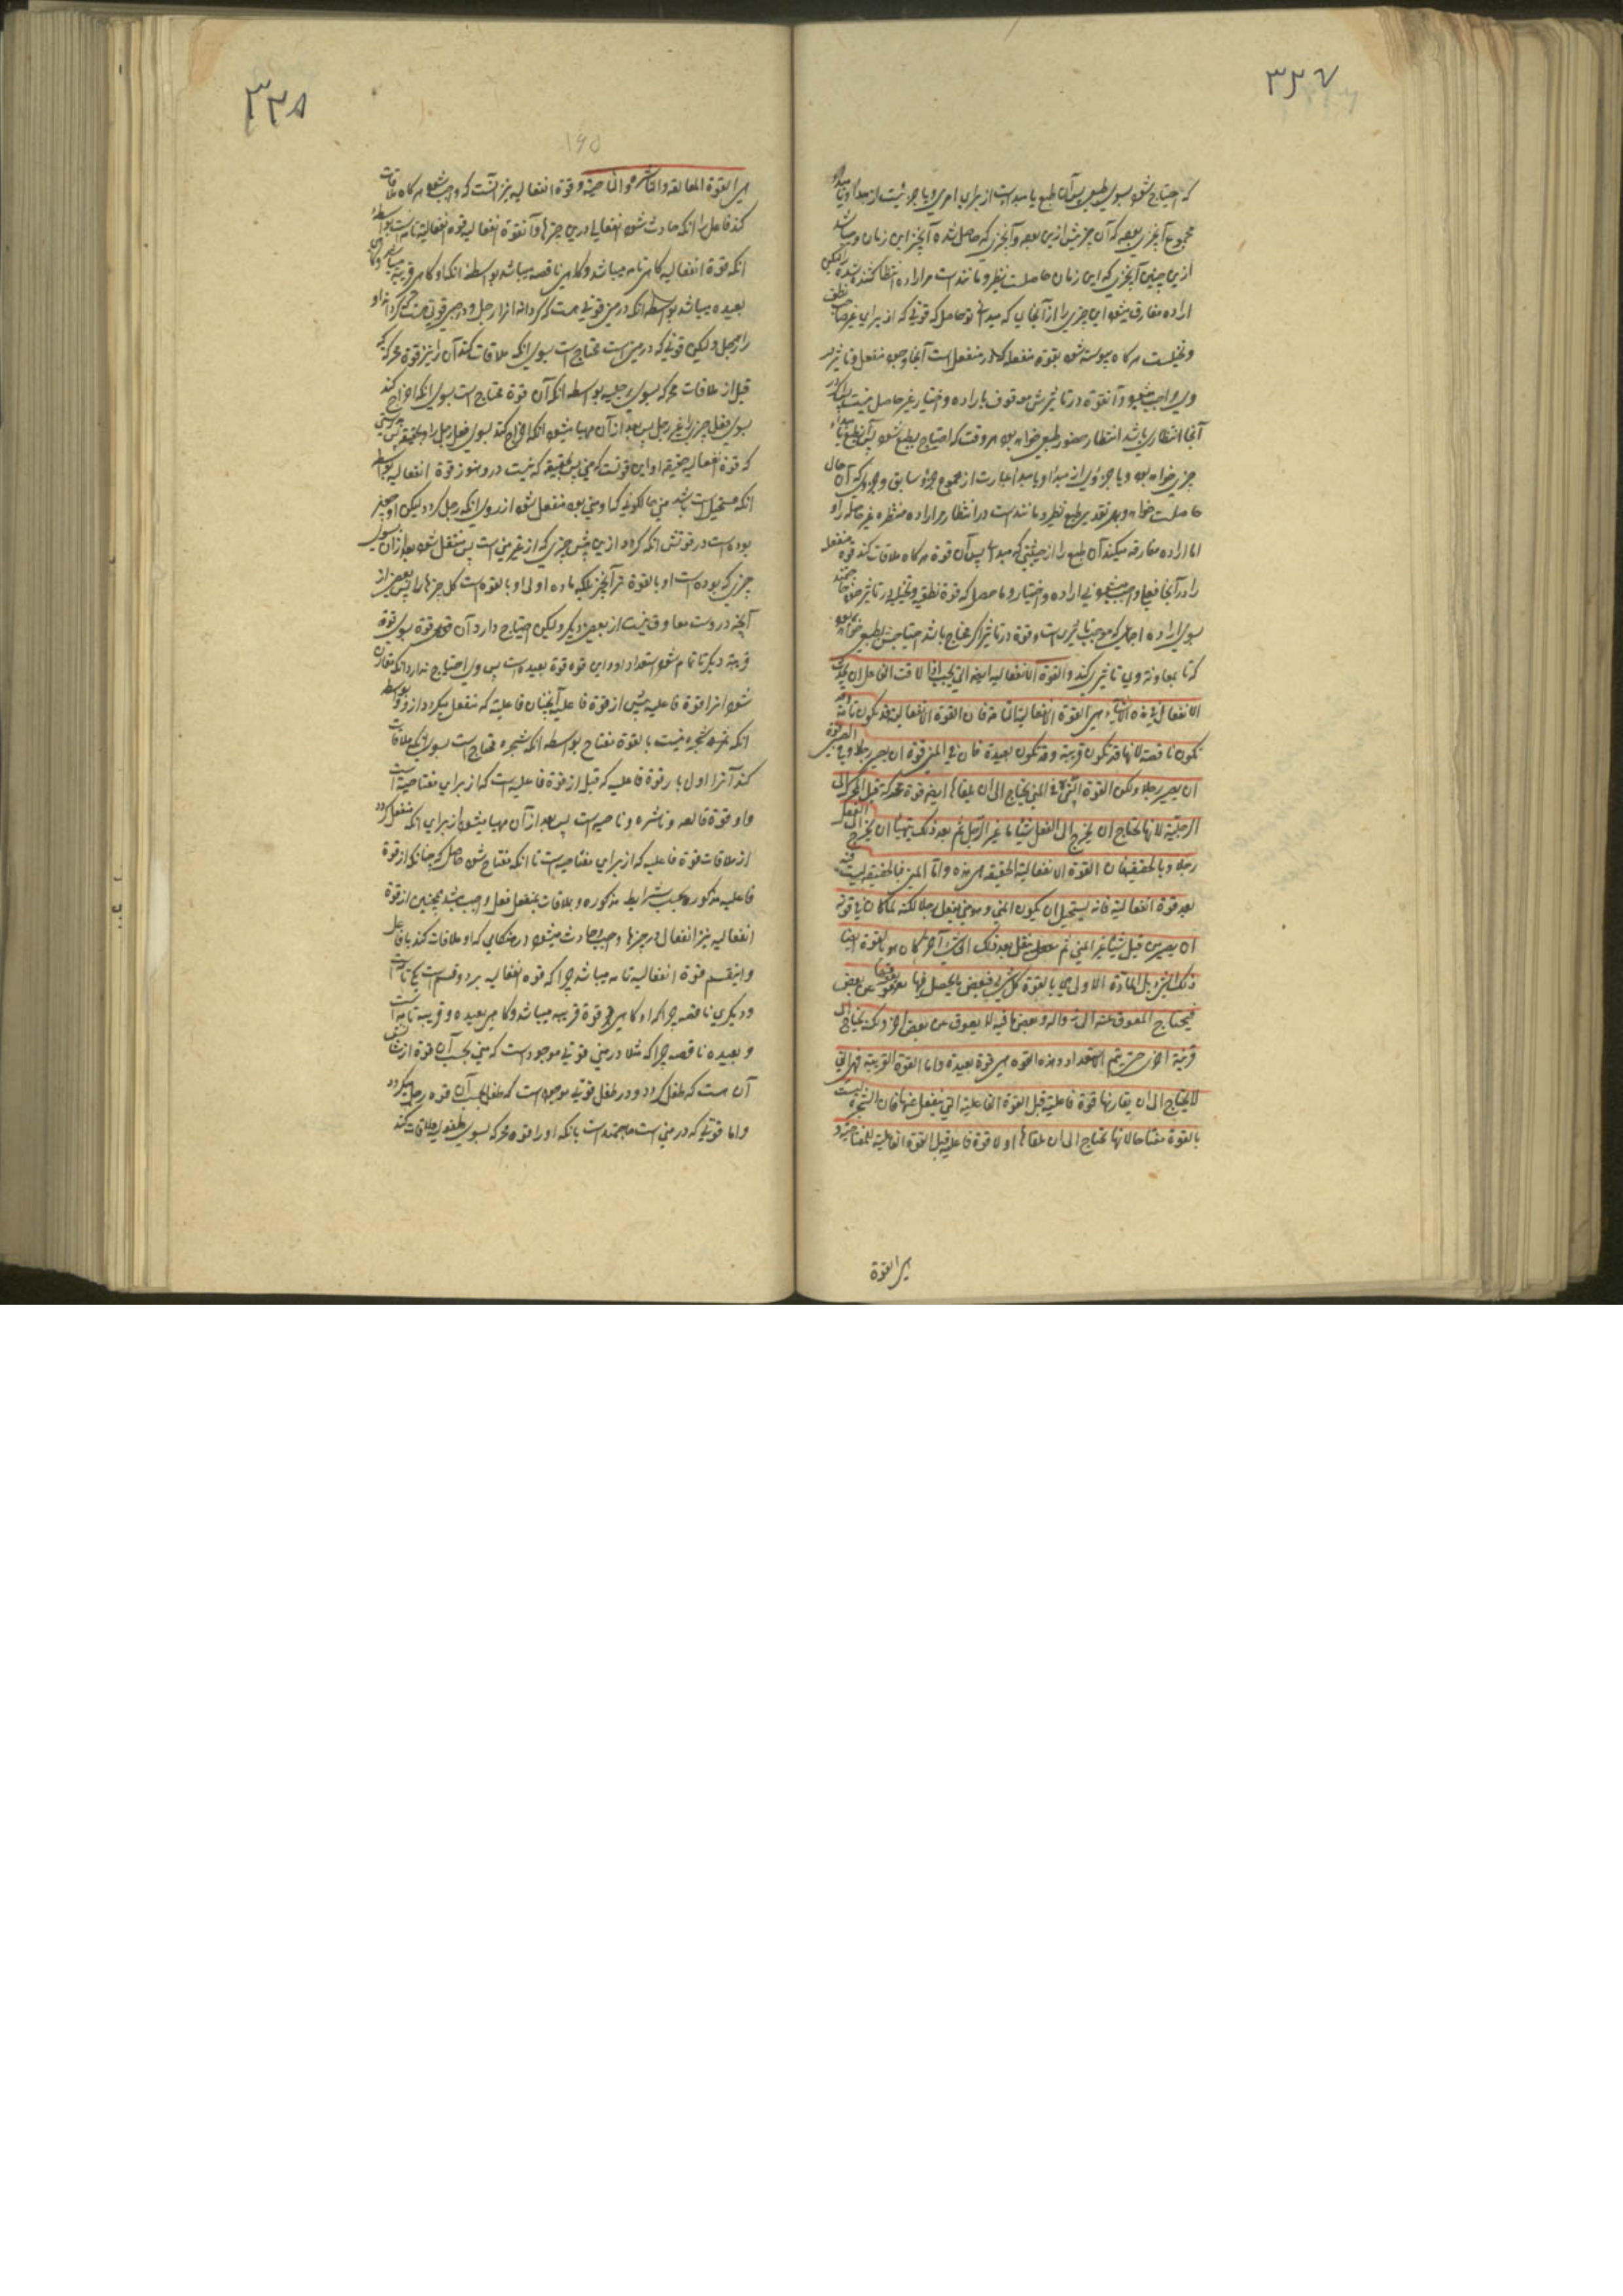 ۳۲۷
که احتیاج شود بسوی طبعی پس آن طبع یا مبدا است از برای امری و یا جزئیست از مبدا و یا مبداء
مجموع آنچیزی بوده که آن چیز پیش ازین بوده و آنچیزی که حاصل شده آنچیز این زمان و میباشد
ازین چنین آنچیزی که این زمان حاصلست نظیر و مانندست مر اراده انتظار کننده شده را لیکن
اراده مفارق میشود این چیزی را از آنجایی که مبداست تو حاصل که قوتی که از برای غیر صاحب نطق
و تخیلست هرگاه پیوسته شود بقوة منفعله که در منفعل است آنجا وجود منفعل و تاثیر
وی واجب میشود و آنقوة در تاثیرش موقوف باراده و اختیار غیر حاصل نیست بلکه اگر در
آنجا انتظاری باشد انتظار حضور طبعی خواهد بود هر وقت که احتیاج بطبع شود پس آنطبع تمام مبداء
چیزی خواهد بود و یا جزوی از مبدا و یا مبدا عبارت از مجموع جزء سابق و جزوی که آن حال
حاصلست خواهد بود بهر تقدیر طبع نظیر و مانندست در انتظار مر اراده منتظره غیر حاصله را و
اما اراده مفارقه میکند آن طبع را از حیثیتی که مبداست پس آن قوة هرگاه ملاقات کند قوة منفعله
را در آنجا فعل واجب میشود بی اراده و اختیار و حاصل که قوة نطقی و تخیلیه در تاثیر خود محتاجند
بسوی اراده اجماعی که موجب تاثیری است و قوة در تاثیر اگر محتاج باشد احتیاجش بطبعی خواهد بود
که تا بمعاونة وی تاثیر میکند والقوة الانفعالیه ایضا التی یجب اذا لاقت الفاعل ان یحدث
الانفعال فی هذه الاشیاء هی القوة الانفعالیة التامة فان القوة الانفعالیة قد تکون تامة وقد
تکون ناقصة لانها قد تکون قریبة وقد تکون بعیدة فان فی المنی قوة ان یصیر رجلا وفی الصبی قوة
ان یصیر رجلا ولکن القوة التی فی المنی یحتاج الی ان یلقاها ایضا قوة محرکة قبل المحرک الی
الرجلیة لانها یحتاج ان یخرج الی الفعل شیئا ما غیر الرجل ثم بعد ذلک یتهیأ ان یخرج الی الفعل
رجلا وبالحقیقة فان القوة الانفعالیة الحقیقة هی هذه واما المنی فبالحقیقة لیست فیه
بعد قوة انفعالیة فانه یستحیل ان یکون المنی وهو منی ینفعل رجلا لکنه لما کان فی قوته
ان یصیر من قبل شیئا غیر المنی ثم ینتقل بعد ذلک الی شیء آخر کان هو بالقوة ایضا
ذلک الشیء بل المادة الاولی هی بالقوة کل شیء فبعض ما یحصل فیها یعوقها عن بعض
فیحتاج المعوق عنه الی زواله وبعض ما فیه لا یعوق عن بعض آخر ولکنه یحتاج الی
قرینة اخری حتی یتم الاستعداد وهذه القوه هی قوة بعیدة واما القوة القریبة فهی التی
لا یحتاج الی ان یقارنها قوة فاعلیة قبل القوة الفاعلیة التی ینفعل عنها فان الشجرة لیست
بالقوة مفتاحا لانها تحتاج الی ان تلقاها اولا قوة فاعلیة قبل القوة الفاعلیة للمفتاحیة و
هی القوة
۳۲۸
۱۶۵
هی القوة القالعة والناشرة والناحتة و قوة انفعالیه نیز آنست که واجب شود هرگاه ملاقات
کند فاعل را آنکه حادث شود انفعالی درین چیزها و آنقوة انفعالیه قوة انفعالیة تامه است بواسطه
آنکه قوة انفعالیه گاهی تامه میباشد و گاهی ناقصه میباشد بواسطه آنکه او گاهی قریبه میباشد و گاهی
بعیده میباشد بواسطه آنکه در منی قوتی هست که گرداند او را رجل و در صبی قوتی هست که گرداند او
را رجل ولیکن قوتی که در منی است محتاج است بسوی آنکه ملاقات کند آن را نیز قوة محرکه که
قبل از ملاقات محرکه بسوی رجلیه بواسطه آنکه آن قوة محتاج است بسوی آنکه اخراج کند
بسوی فعل چیزی را غیر رجل پس بعد از آن مهیا میشود آنکه اخراج کند بسوی فعل رجل را و بحقیقه پس بدرستی
که قوة انفعالیه حقیقه او این قوتست که منی پس بحقیقه که نیست در وی هنوز قوة انفعالیه بواسطه
آنکه مستحیل است باشد منی حالکونی که او منی بود منفعل شود از روی آنکه رجل گردد لیکن او چون
بوده است در قوتش آنکه گردد ازین پیش چیزی که از غیر منی است پس منتقل شود بعد از آن بسوی
چیزی که بوده است او بالقوة نیز آنچیز بلکه ماده اولی او بالقوه است کل چیزها را پس بعضی از
آنچه در وست معاوق نیست از بعضی دیگر ولیکن احتیاج دارد آن قوة بسوی قوة
قرینة دیگر تا تمام شود استعداد او و این قوه قوة بعیده است پس وی احتیاج ندارد آنکه مقارن
شود او را قوة فاعلیه پیش از قوة فاعلیه آنچنان فاعلیة که منفعل میگردد از او بواسطه
آنکه شجره نیست بالقوة مفتاح بواسطه آنکه شجره محتاج است بسوی آنکه ملاقات
کند آنرا اول بار قوة فاعلیه که قبل از قوة فاعلیه است که از برای مفتاحیة است
و او قوة قالعه و ناشره و ناحته است پس بعد از آن مهیا میشود از برای آنکه منفعل گردد
از ملاقات قوة فاعلیه که از برای مفتاحیه است تا آنکه مفتاح شود حاصل که چنانکه از قوة
فاعلیه مذکوره بحسب شرایط مذکوره و بملاقات بمنفعل فعل واجب میشد همچنین از قوة
انفعالیه نیز انفعال در چیزها واجب و حادث میشود در هنگامی که او ملاقات کند با فاعل
و اینقسم قوة انفعالیه تامه میباشد چرا که قوه انفعالیه بر دو قسم است یکی تامه است
و دیگری ناقصه چرا که او گاهی قوة قریبه میباشد و گاهی بعیده و قریبه تامه است
و بعیده ناقصه چرا که مثلا در منی قوتی موجود است که منی بحسب آن قوة از شان
آن هست که طفل گردد و در طفل قوتی موجود است که طفل بحسب آن قوه رجل میگردد
و اما قوتی که در منی است محتاجست بانکه او را قوه محرکه بسوی طفولیت ملاقات کند